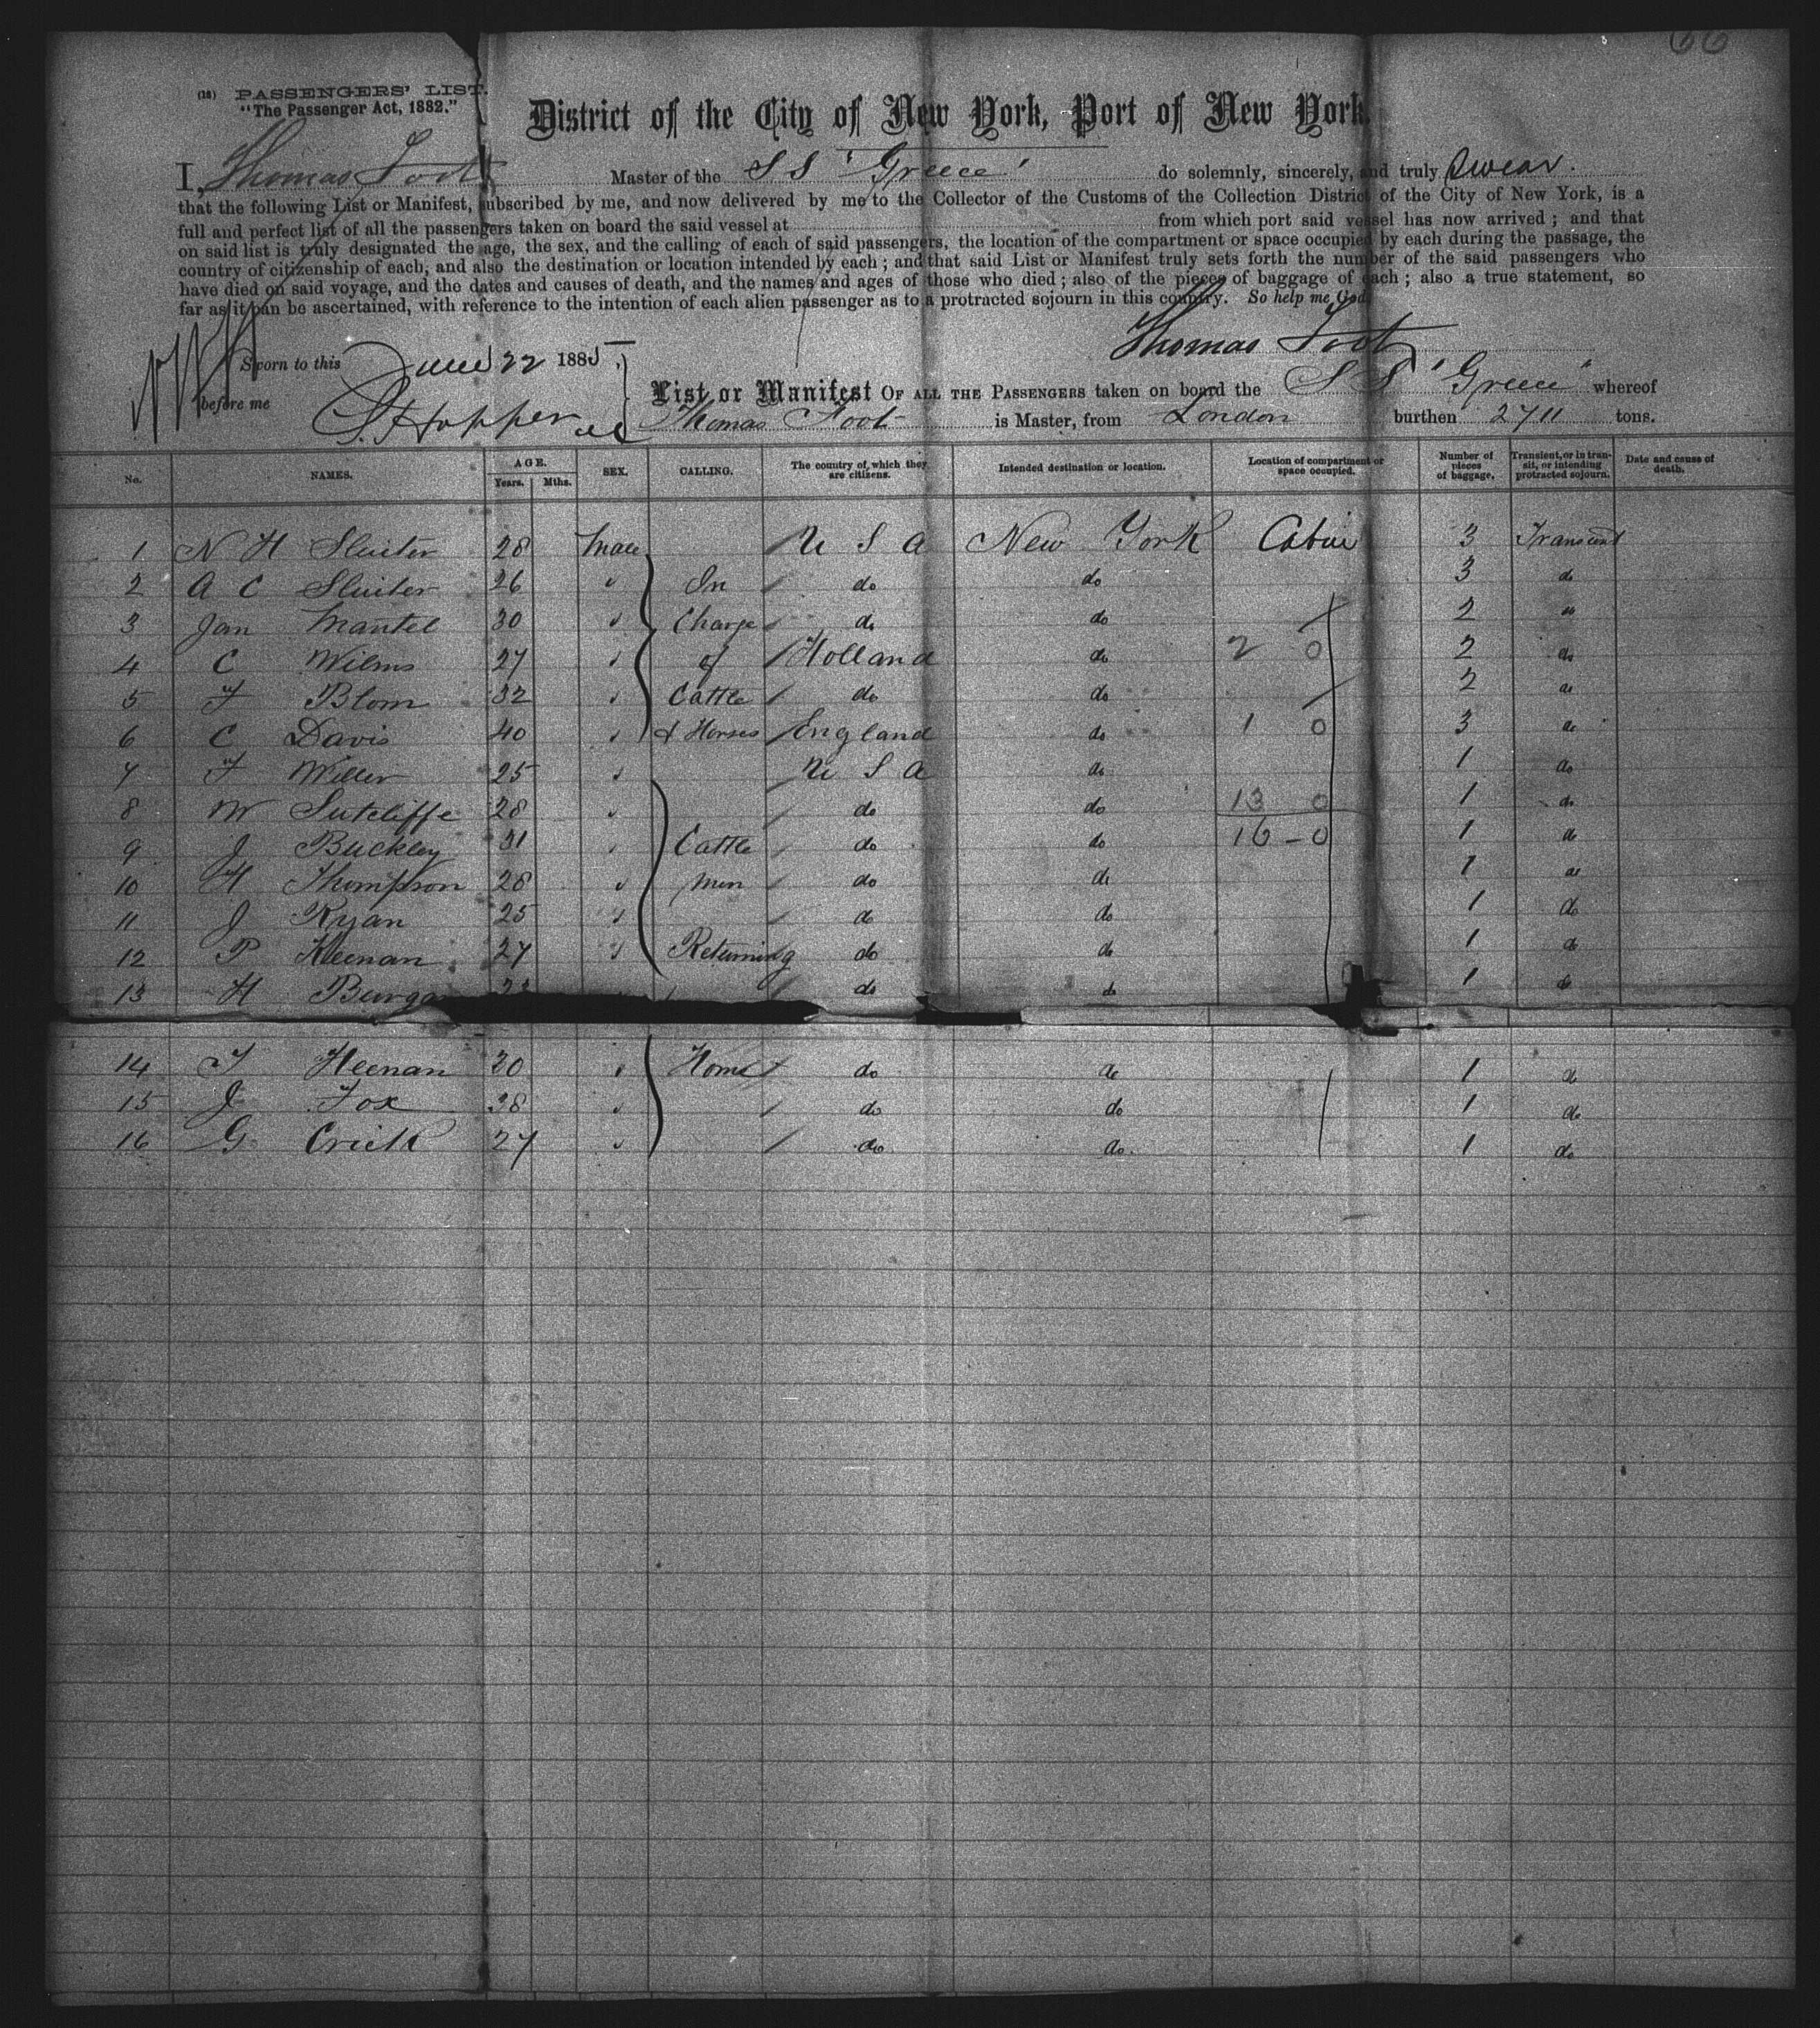 66
(18) PASSENGERS' LIST.
"The Passenger Act, 1882."
District of the City of New York, Port of New York.
I, Thomas Foot Master of the S S 'Greece' do solemnly, sincerely, and truly Swear.
that the following List or Manifest, subscribed by me, and now delivered by me to the Collector of the Customs of the Collection District of the City of New York, is a
full and perfect list of all the passengers taken on board the said vessel at from which port said vessel has now arrived; and that
on said list is truly designated the age, the sex, and the calling of each of said passengers, the location of the compartment or space occupied by each during the passage, the
country of citizenship of each, and also the destination or location intended by each; and that said List or Manifest truly sets forth the number of the said passengers who
have died on said voyage, and the dates and causes of death, and the names and ages of those who died; also of the pieces of baggage of each; also a true statement, so
far as it can be ascertained, with reference to the intention of each alien passenger as to a protracted sojourn in this country. So help me God.
Thomas Foot
Sworn to this June 22 1885
before me S. Hopper
List or Manifest OF ALL THE PASSENGERS taken on board the S S 'Greece' whereof
Thomas Foot is Master, from London burthen 2711 tons.
No. NAMES. AGE. Years. Mths. SEX. CALLING. The country of which they are citizens. Intended destination or location. Location of compartment or space occupied. Number of pieces of baggage. Transient, or in transit, or intending protracted sojourn. Date and cause of death.
1 N H Sluiter 28 Male U S A New York Cabin 3 Transient
2 A C Sluiter 26 " In do do 3 do
3 Jan Mantel 30 " Charge do do 2 "
4 C Wilms 27 " of Holland do 2 0 2 do
5 F Blom 32 " Cattle do do 2 do
6 C Davis 40 " & Horses England do 1 0 3 do
7 F Willer 25 " U S A do 1 do
8 W Sutcliffe 28 " do do 13 0 1 do
9 J Buckley 31 " Cattle do do 16 - 0 1 do
10 H Thompson 28 " men do do 1 do
11 J Ryan 25 " do do 1 do
12 P Keenan 27 " Returning do do 1 do
13 H do do 1 do
14 T Heenan 30 " Home do do 1 do
15 J Fox 38 " do do 1 do
16 G Crick 27 " do do 1 do